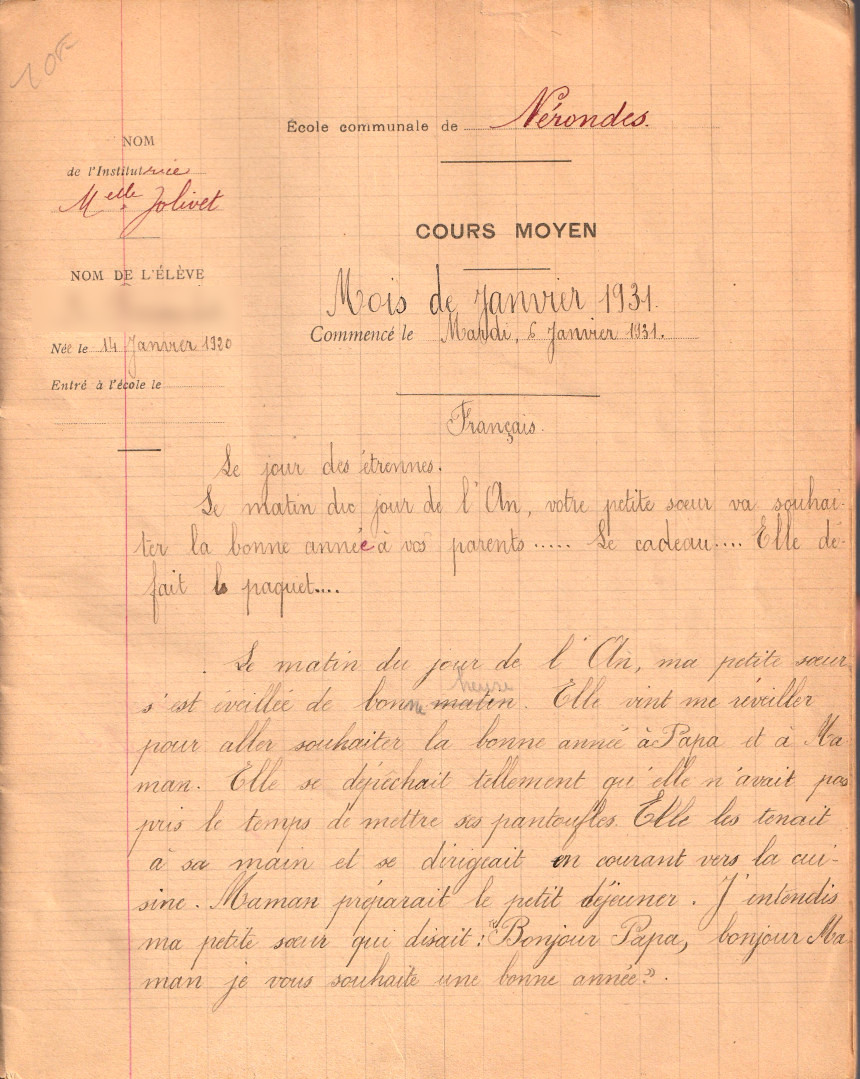 10F
École communale de Nérondes.
NOM
de l'Institutrice
Melle Jolivet
COURS MOYEN
NOM DE L'ÉLÈVE
Mois de Janvier 1931.
Née le 14 Janvier 1920
Commencé le Mardi, 6 Janvier 1931.
Entré à l'école le
Français.
Le jour des étrennes.
Le matin du jour de l'An, votre petite sœur va souhai-
ter la bonne année à vos parents ..... Le cadeau.... Elle dé-
fait le paquet....
Le matin du jour de l'An, ma petite sœur
heure
s'est éveillée de bonne matin. Elle vint me réveiller
pour aller souhaiter la bonne année à Papa et à Ma
man. Elle se dépêchait tellement qu'elle n'avait pas
pris le temps de mettre ses pantoufles. Elle les tenait
à sa main et se dirigeait en courant vers la cui-
sine. Maman préparait le petit déjeuner. J'entendis
ma petite sœur qui disait : "Bonjour Papa, bonjour Ma
man je vous souhaite une bonne année".